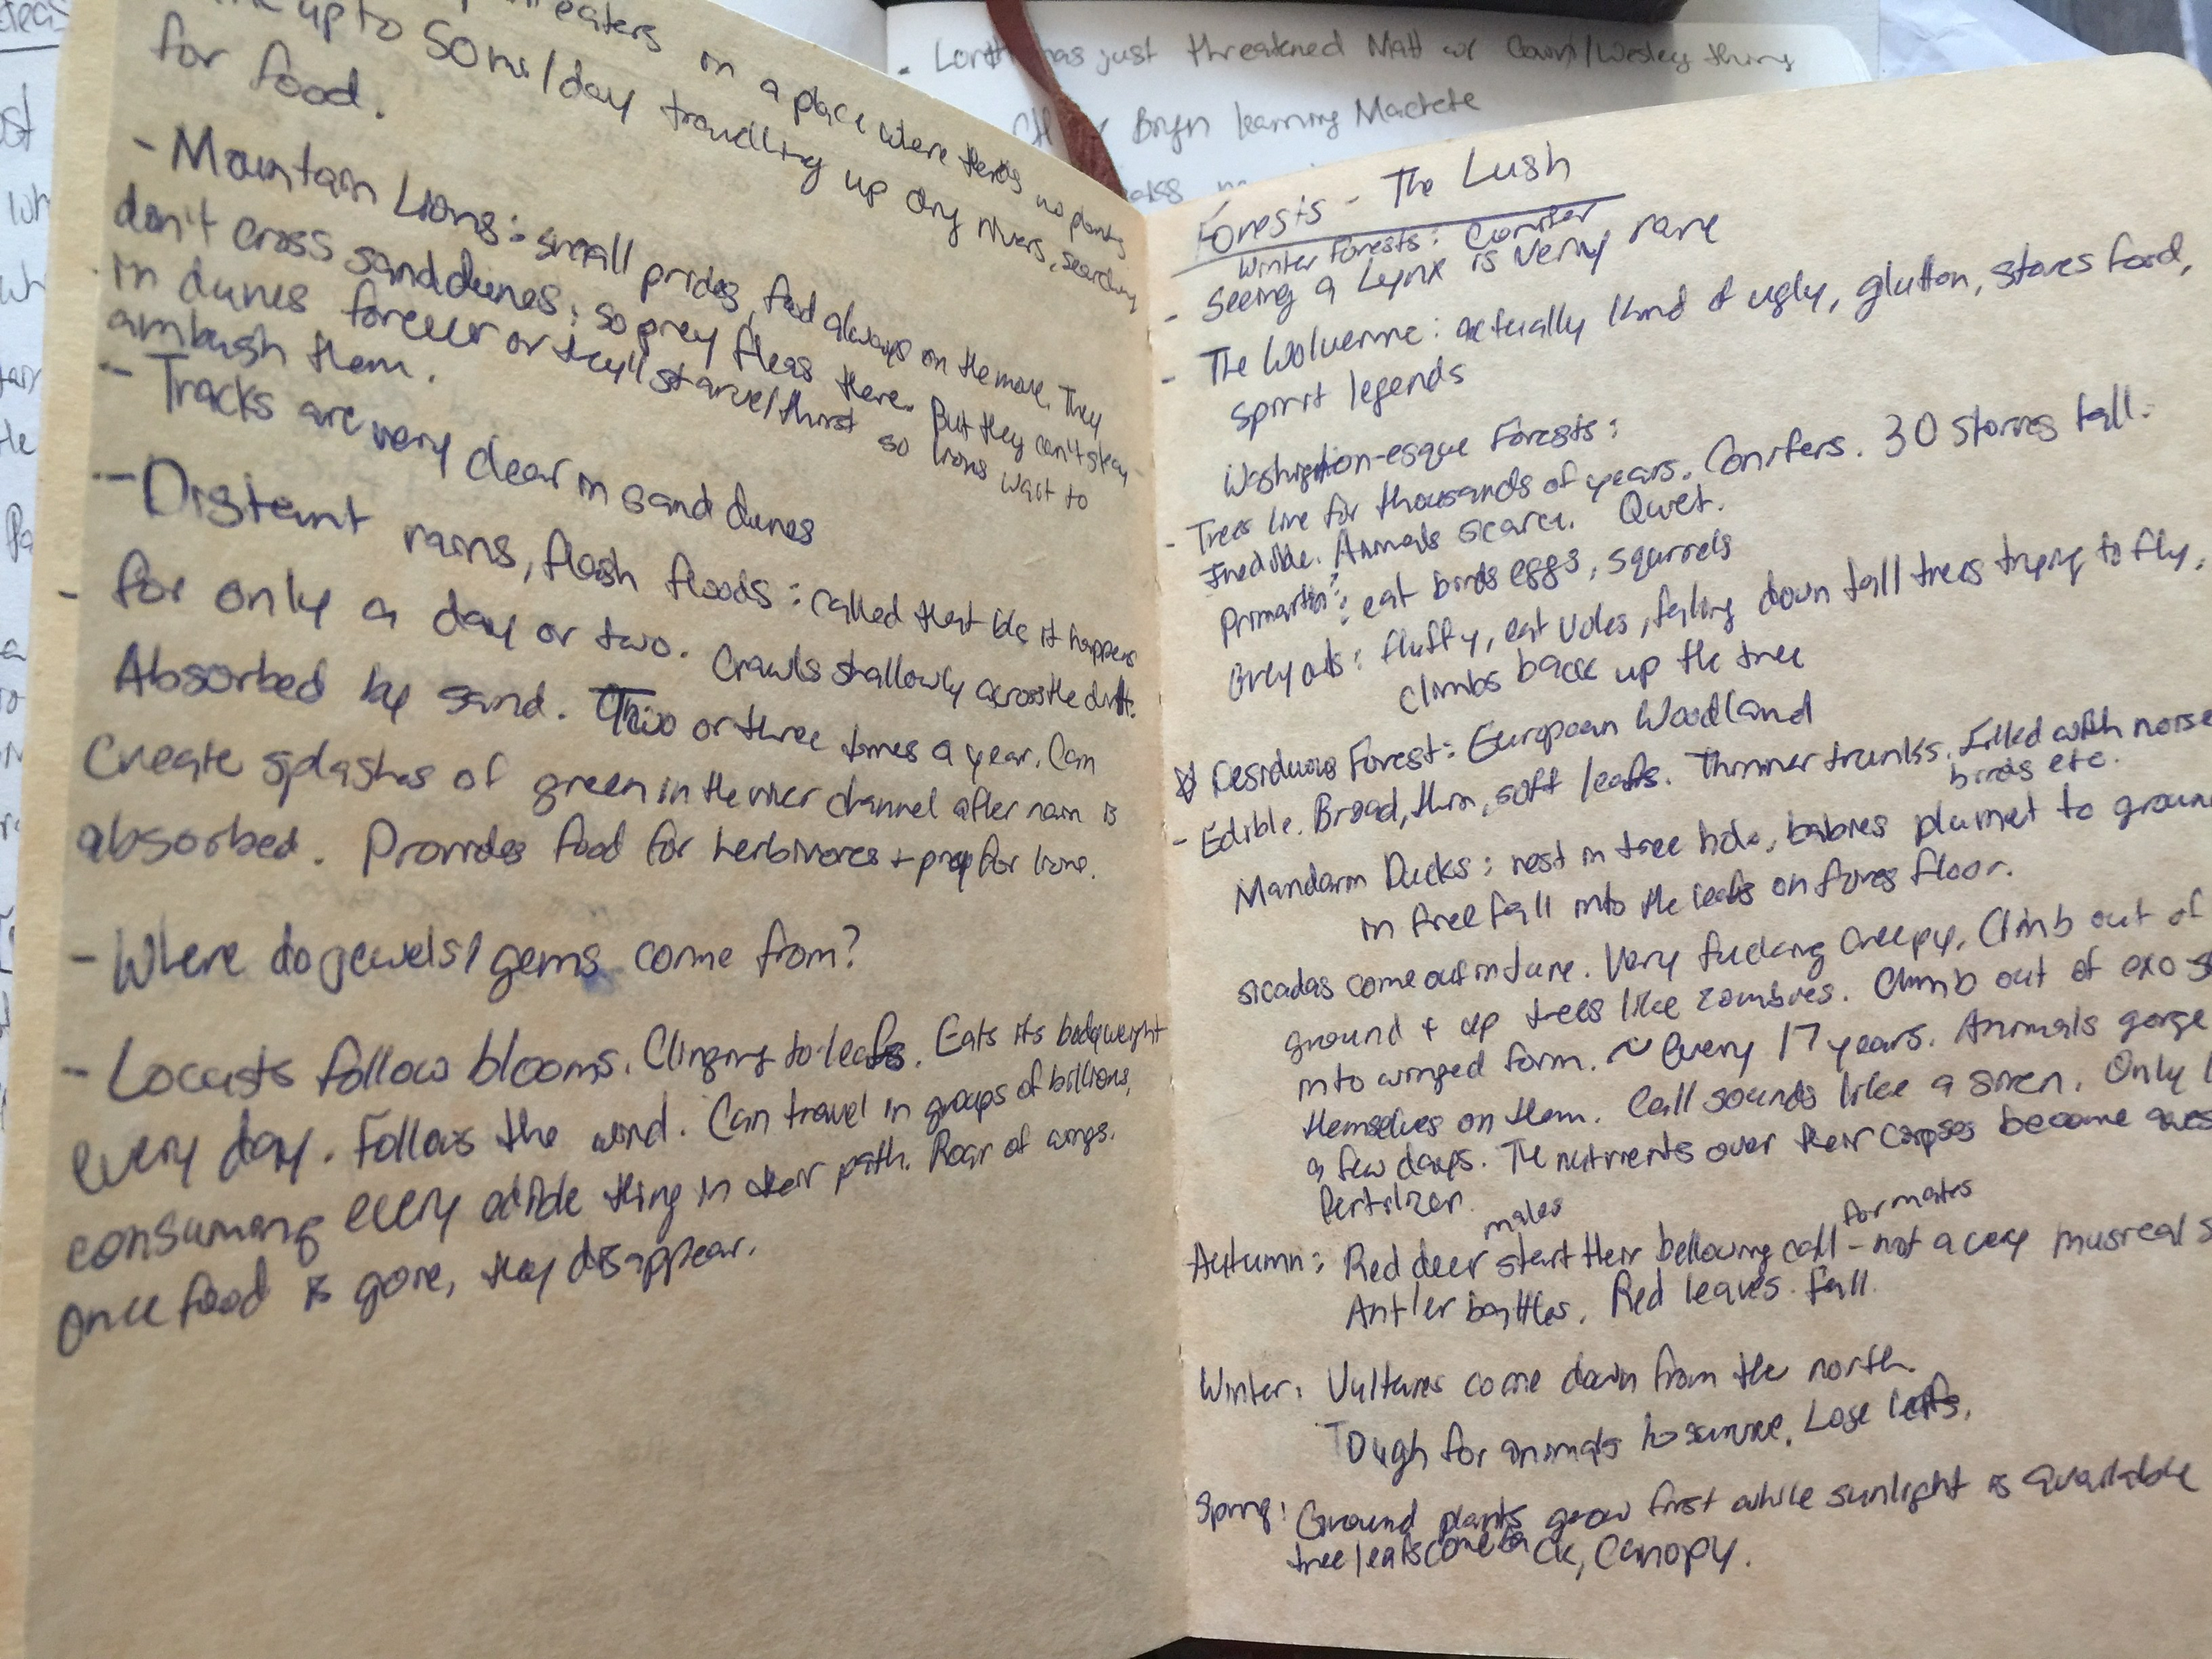 eaters in a place where theres no plants
up to 50 mi/day travelling up dry rivers, searching
for food.
- Mountain Lions: small prides, food always on the move. They
don't cross sand dunes, so prey fleas there. But they can't stay
in dunes forever or they'll starve/thirst so lions wait to
ambush them.
- Tracks are very clear in sand dunes
- Distant rains, flash floods: called that b/c it happens
- for only a day or two. Crawls shallowly across the
Absorbed by sand. Two or three times a year. Can
Create splashes of green in the river channel after rain is
absorbed. Provides food for herbivores + prey for lions.
- Where do jewels/gems come from?
- Locusts follow blooms. Clinging to leafs. Eats its bodyweight
every day. Follows the wind. Can travel in groups of billions,
consuming every edible thing in their path. Roar of wings.
Once food is gone, they disappear.
has just threatened Matt w/
Bryn learning Machete
Forests - The Lush
Winter Forests: Conifer
- Seeing a Lynx is very rare
- The Wolverine: actually kind of ugly, glutton, stores food,
spirit legends
Washington-esque Forests:
- Trees live for thousands of years. Conifers. 30 stories tall.
Inedible. Animals scarce. Quiet.
eat birds eggs, squirrels
Grey owls: fluffy, eat voles, falling down tall trees trying to fly,
climbs back up the tree
Desiduous Forest: European Woodland
- Edible. Broad, thin, soft leafs. Thinner trunks. Filled with noise
birds etc.
Mandarin Ducks: nest in tree hole, babies plumet to
in free fall into the leafs on fores floor.
sicadas come out in June. Very fucking creepy. Climb out of
ground + up trees like zombies. Climb out of exo
into winged form. ~ Every 17 years. Animals gorge
themselves on them. Call sounds like a siren. Only
a few days. The nutrients over their corpses become
fertilizer.
males for mates
Autumn: Red deer start their bellowing call - not a very
Antler battles. Red leaves fall.
Winter: Vultures come down from the north.
Tough for animals to survive. Lose leafs.
Spring: Ground plants grow first while sunlight is available
tree leafs come back, canopy.